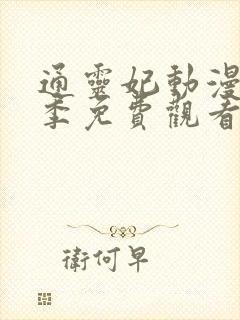 通靈妃動漫
季免費觀看
衛何早